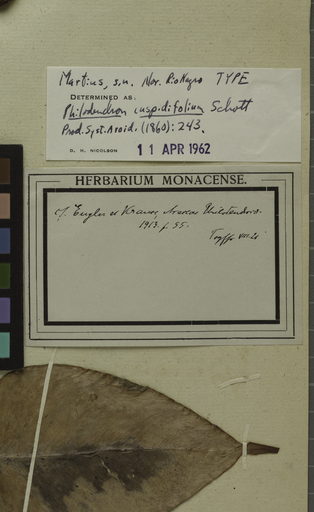 Martius, s.n. Nov. Rio Negro TYPE
DETERMINED AS:
Philodendron cuspidifolium Schott
Prod. Syst. Aroid. (1860): 243.
D. H. NICOLSON 11 APR 1962
HERBARIUM MONACENSE.
cf. Engler et Krause, Araceae Philodendr.
1913. p. 55.